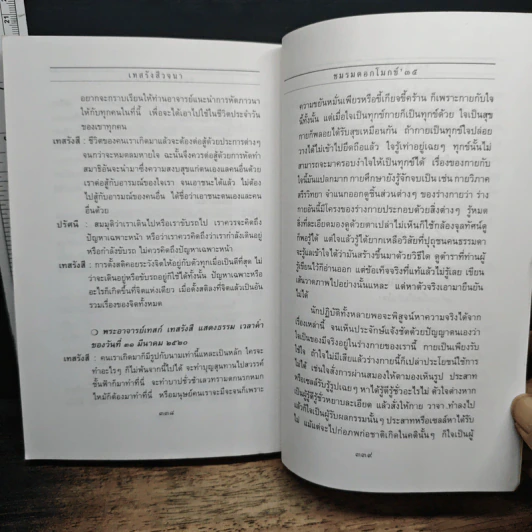 เทสรังสีวจนา
อยากจะกราบเรียนให้ท่านอาจารย์แนะนำการหัดภาวนา
ให้กับทุกคนในที่นี้ เพื่อจะได้เอาไปใช้ในชีวิตประจำวัน
ของเขาทุกคน
เทสรังสี : ชีวิตของคนเราเกิดมาแล้วจะต้องต่อสู้ด้วยประการต่างๆ
จนกว่าจะหมดลมหายใจ ฉะนั้นจึงควรต่อสู้ด้วยการหัดทำ
สมาธิอันจะนำมาซึ่งความสงบสุขแก่ตนเองแลคนอื่นด้วย
เราต่อสู้กับอารมณ์ของใจเรา จนเอาชนะได้แล้ว ไม่ต้อง
ไปสู้กับอารมณ์ของคนอื่น ได้ชื่อว่าเอาชนะตนเองและคน
อื่นด้วย
ปรัศนี : สมมุติว่าเราเดินไปหรือเราขับรถไป เราควรจะคิดถึง
ปัญหาเฉพาะหน้า หรือว่าเราควรคิดถึงว่าเรากำลังเดินอยู่
หรือกำลังขับรถ ไม่ควรคิดถึงปัญหาเฉพาะหน้า
เทสรังสี : การตั้งสติคอยระวังจิตให้อยู่กับตัวทุกเมื่อเป็นดีที่สุด ไม่
ว่าจะเดินอยู่หรือขับรถอยู่ก็ใช้ได้ทั้งนั้น ปัญหาเฉพาะหรือ
อะไรก็เกิดขึ้นที่จิตแห่งเดียว เมื่อตั้งสติลงที่จิตแล้วเป็นอัน
รวมเรื่องของจิตทั้งหมด
❍ พระอาจารย์เทสก์ เทสรังสี แสดงธรรม เวลาค่ำ
ของวันที่ ๓๑ มีนาคม ๒๕๒๐
เทสรังสี : คนเราเกิดมาก็มีรูปกับนามเท่านี้แหละเป็นหลัก ใครจะ
ทำอะไรๆ ก็ไม่พ้นจากนี้ไปได้ จะทำบุญสุนทานไปสวรรค์
ชั้นฟ้าก็มาทำที่นี่ จะทำบาปชั่วช้าเลวทรามตกนรกหมก
ไหม้ก็ต้องมาทำที่นี่ หรือมนุษย์คนเราจะมีจะจนก็เพราะ
๓๓๘
ชมรมดอกโมกข์'๓๕
ความขยันหมั่นเพียรหรือขี้เกียจขี้คร้าน ก็เพราะกายกับใจ
นี้ทั้งนั้น แต่เมื่อใจเป็นทุกข์กายก็เป็นทุกข์ด้วย ใจเป็นสุข
กายก็พลอยได้รับสุขเหมือนกัน ถ้ากายเป็นทุกข์ใจปล่อย
วางได้ไม่เข้าไปยึดถือแล้ว ใจรู้เท่าอยู่เฉยๆ ทุกข์นั้นไม่
สามารถจะมาครอบงำใจให้เป็นทุกข์ได้ เรื่องของกายกับ
ใจนี้มันแปลกมาก กายศึกษายังรู้จักจบเป็น เช่น กายวิภาค
สรีรวิทยา จำแนกออกดูชิ้นส่วนต่างๆ ของร่างกายว่า ร่าง
กายอันนี้มีโครงของร่างกายประกอบด้วยสิ่งต่างๆ รู้หมด
สิ่งที่ละเอียดมองดูด้วยตาเปล่าไม่เห็นก็ใช้กล้องจุลทัศน์ดู
ก็พอรู้ได้ แต่ใจแล้วรู้ได้ยากเหลือวิสัยที่ปุถุชนคนธรรมดา
จะรู้และเข้าใจได้ว่ามันสร้างขึ้นมาด้วยวิธีใด ดูตำราที่ท่านผู้
รู้เขียนไว้ก็อ่านออก แต่ข้อเท็จจริงที่แท้แล้วไม่รู้เลย เขียน
เดินวาดภาพไปอย่างนั้นแหละ แต่หาตัวจริงเอามายืนยัน
ไม่ได้
นักปฏิบัติทั้งหลายพอจะพิสูจน์หาความจริงได้จาก
เรื่องเหล่านี้ จนเห็นประจักษ์แจ้งชัดด้วยปัญญาตนเองว่า
ใจเป็นของมีจริงอยู่ในร่างกายของเรานี้ กายเป็นเพียงรับ
ใช้ใจ ถ้าใจไม่มีเสียแล้วร่างกายนี้ก็เปล่าประโยชน์ใช้การ
ไม่ได้ เช่นใจสั่งการผ่านสมองให้ตามองเห็นรูป ประสาท
หรือเซลล์รับรู้รูปเฉยๆ หาได้รู้ดีรู้ชั่วอะไรไม่ ตัวใจต่างหาก
เป็นผู้รู้ดีรู้ชั่วหยาบละเอียด แล้วสั่งให้กาย วาจา ทำลงไป
แล้วก็ใจเป็นผู้รับผลกรรมนั้นๆ ประสาทหรือเซลล์หาได้รับ
ไม่ แม้แต่จะไปก่อภพก่อชาติเกิดในคตินั้นๆ ก็ใจเป็นผู้
๓๓๙